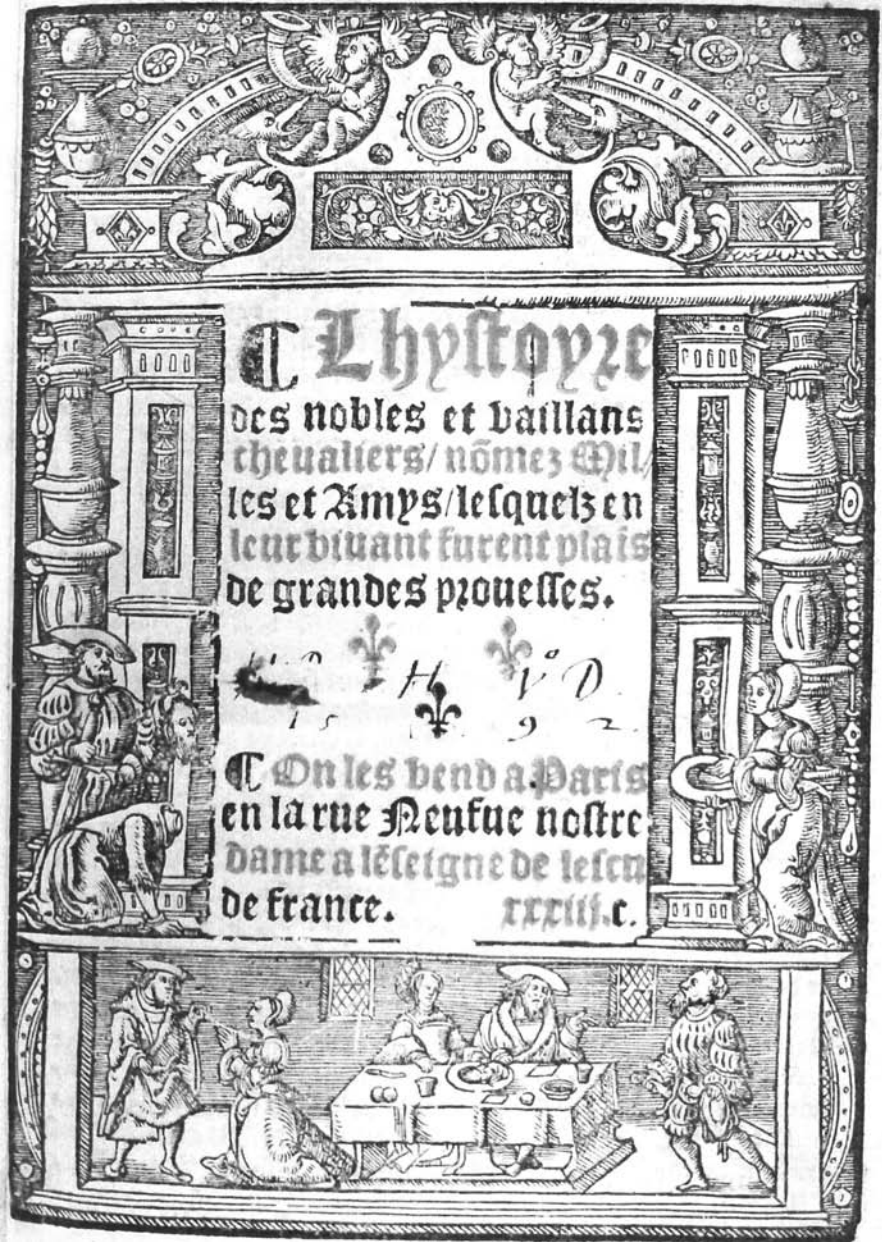 ⸿ Lhystoyre
des nobles et vaillans
cheualiers/ nõmez Mil/
les et Amys/lesquelz en
leur viuant furent plais
de grandes prouesses.
H Vº D
15 92
⸿ On les vend a Paris
en la rue Neufue nostre
dame a lẽseigne de lescu
de france. xxxiiij.c.